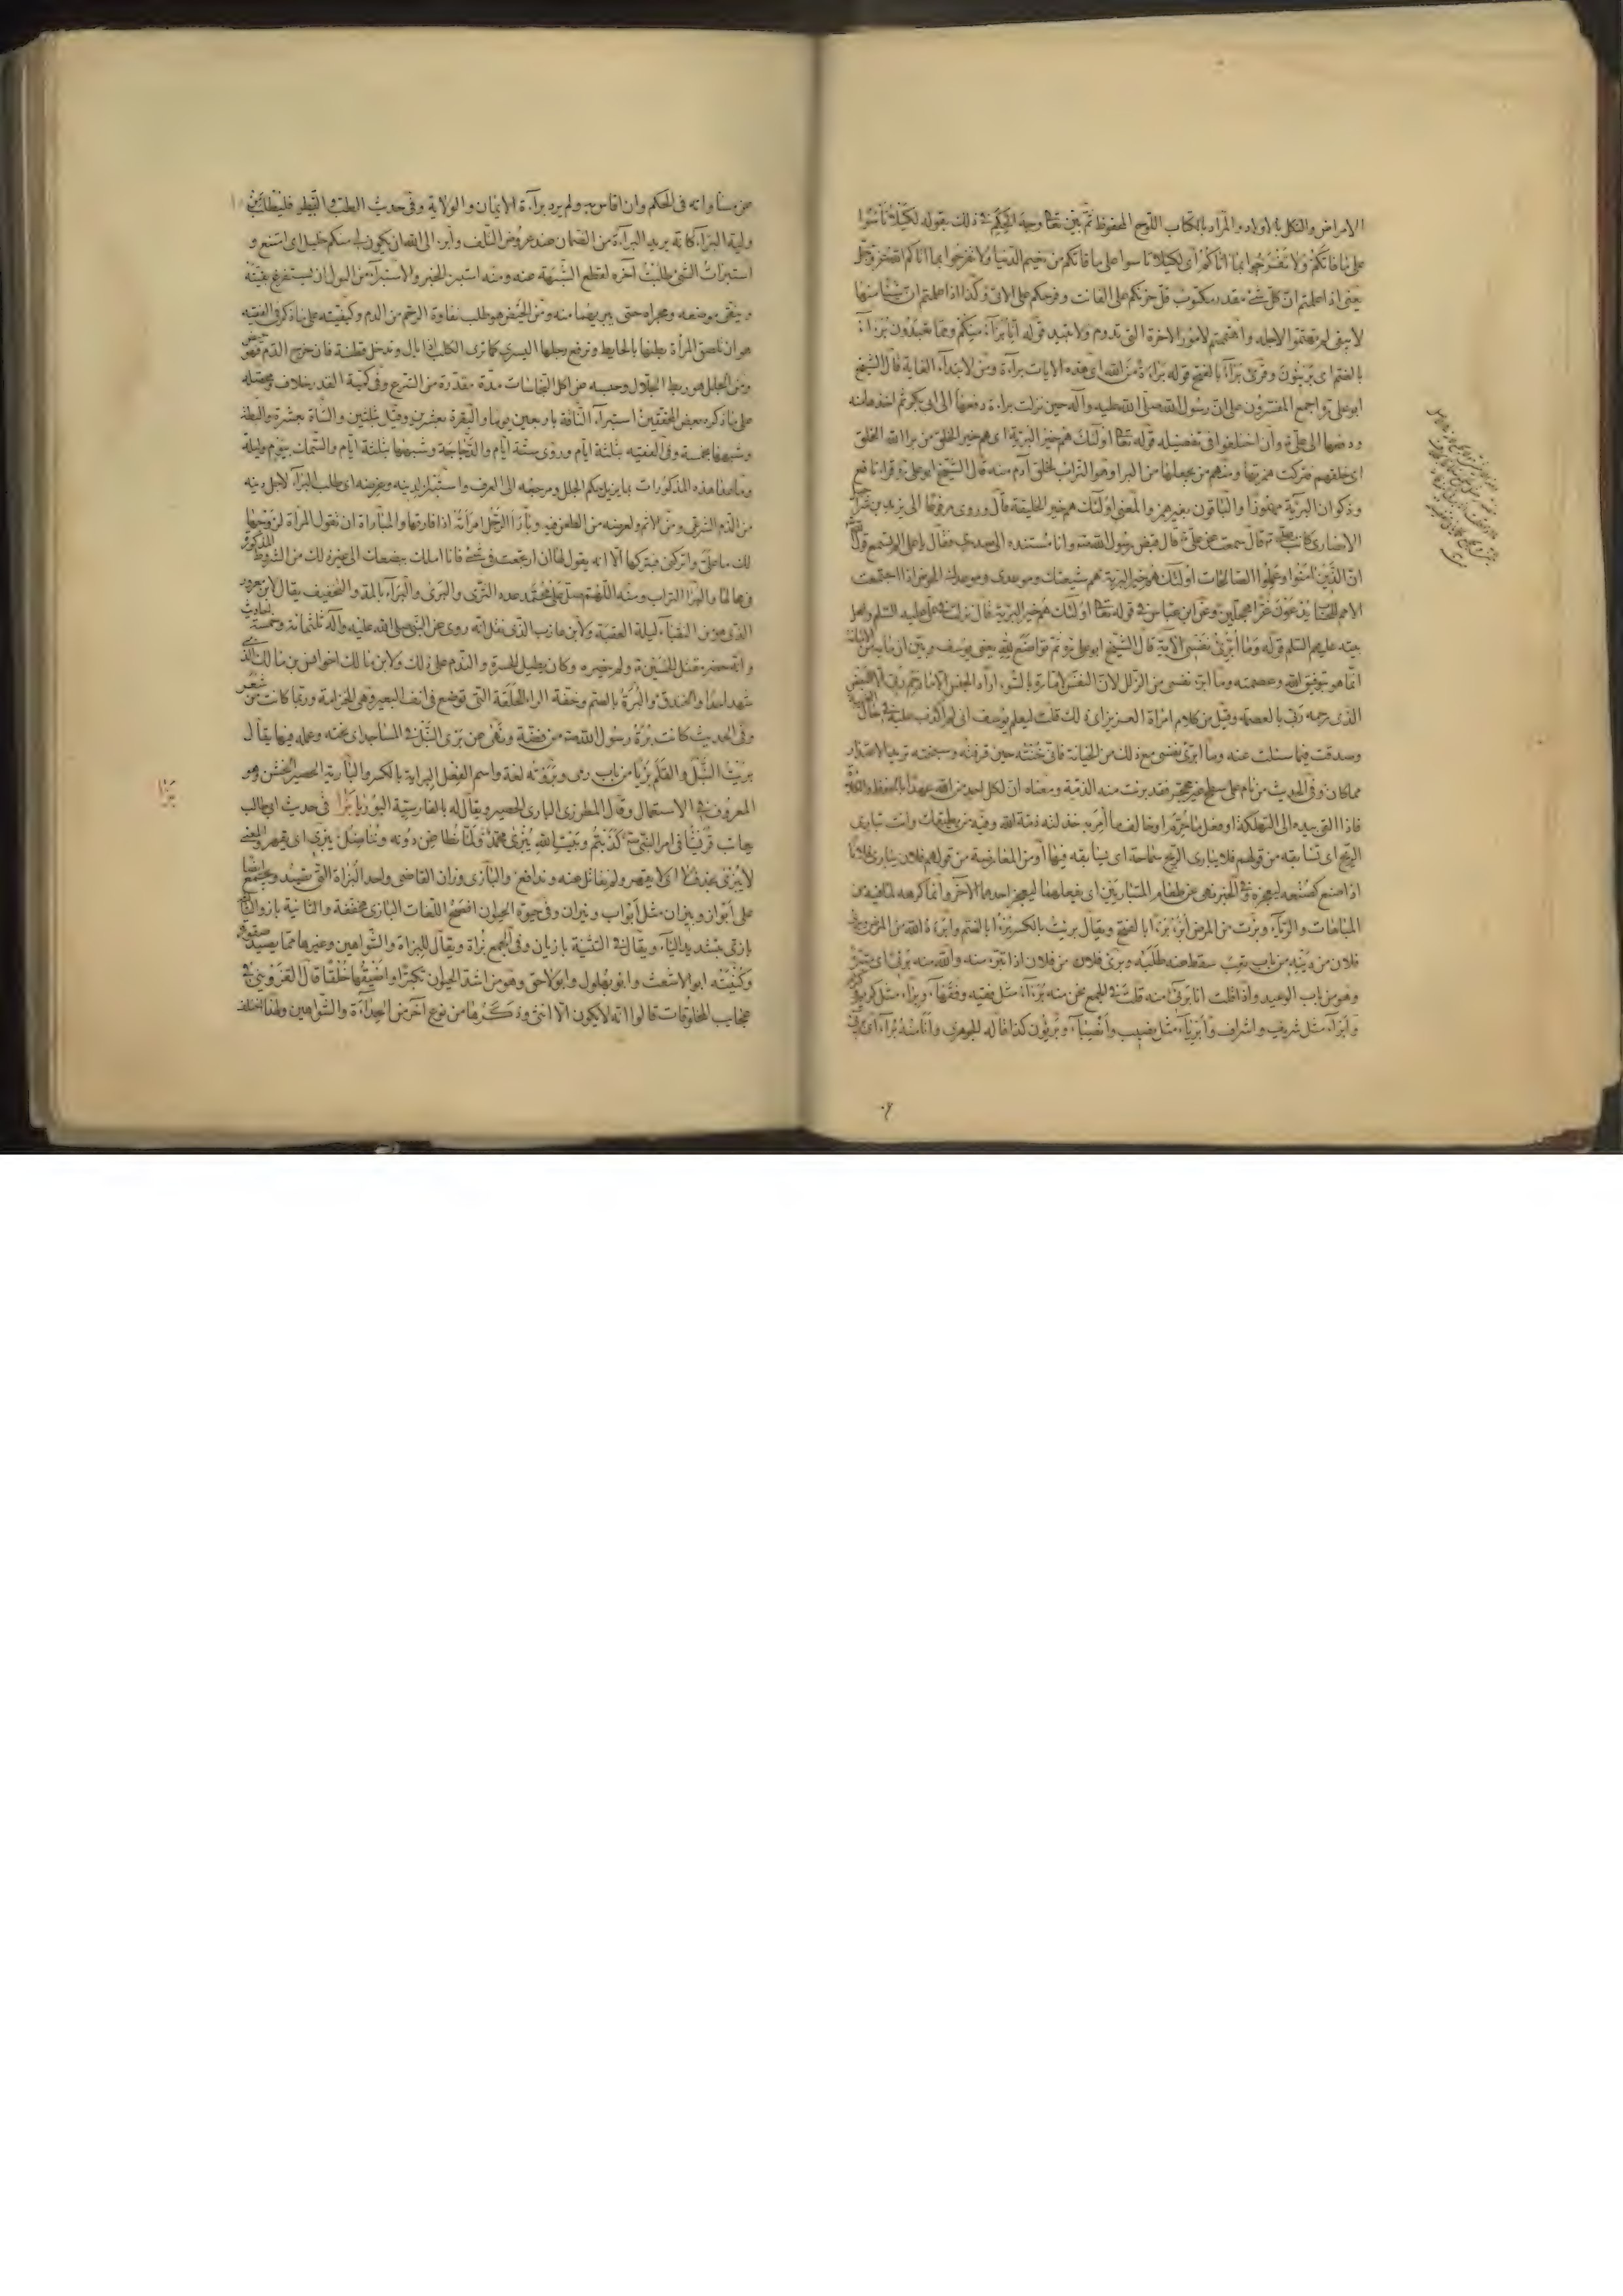 الامراض والثكل بالاولاد والمراد بالكتاب اللوح المحفوظ ثم بين تعالى وجه الحكمة في ذلك بقوله لكيلا تأسوا
على ما فاتكم ولا تفرحوا بما اتاكم اى لكيلا تاسوا على ما فاتكم من نعيم الدنيا ولا تفرحوا بما اتاكم الله عز وجل
يعنى اذا علمتم ان كل شئ مقدر مكتوب قل حزنكم على الفائت وفرحكم على الاتى وكذا اذا علمتم ان شيئا منها
لا يبقى لم تهتموا لاجله واهتممتم لامور الاخرة التى تدوم ولا تبيد قوله انا برآء منكم ومما تعبدون برآء
بالضم اى بريئون وقرئ برآء بالفتح قوله براءة من الله اى هذه الايات براءة ومن لابتداء الغاية قال الشيخ
ابو على ره واجمع المفسرون على ان رسول الله صلى الله عليه وآله حين نزلت براءة دفعها الى ابى بكر ثم اخذها منه
ودفعها الى على ع وان اختلفوا فى تفصيله قوله تعالى اولئك هم خير البرية اى هم خير الخلق من برأ الله الخلق
اى خلقهم فتركت همزتها ومنهم من يجعلها من البرا وهو التراب لخلق آدم منه قال الشيخ ابو على ره قرا نافع
وذكوان البرية مهموزا والباقون بغير همز والمعنى اولئك هم خير الخليقة قال وروى مرفوعا الى يزيد بن شراحيل
الانصارى كاتب على ع قال سمعت عن على ع قال قبض رسول الله ص وانا مسنده الى صدرى فقال يا على الم تسمع قول الله
ان الذين امنوا وعملوا الصالحات اولئك هم خير البرية هم شيعتك وموعدى وموعدك الحوض اذا اجتمعت
الامم للحساب يدعون غرا محجلين وعن ابن عباس فى قوله تعالى اولئك هم خير البرية قال نزلت فى على عليه السلم واهل
بيته عليهم السلم قوله وما ابرئ نفسى الآية قال الشيخ ابو على ره ثم تواضع لله يعنى يوسف وبين ان ما به من الامانة
انما هو توفيق الله وعصمته وما ابرئ نفسى من الزلل لان النفس لامارة بالسوء اراد الجنس الا ما رحم ربى الا البعض
الذى رحمه ربى بالعصمة وقيل من كلام امرأة العزيز اى ذلك قلت ليعلم يوسف انى لم اكذب عليه فى حال الغيبة
وصدقت فيما سئلت عنه وما ابرئ نفسى مع ذلك من الخيانة فانى خنته حين قرفته وسجنته تريد الاعتذار
مما كان وفى الحديث من نام على سطح غير محجر فقد برئت منه الذمة ومعناه ان لكل احد من الله عهدا بالحفظ والكلاءة
فاذا القى بيده الى التهلكة او فعل ما حرم او خالف ما امر به خذلته ذمة الله وفيه من مطيقات وانت تبارى
الريح اى تسابقه من قولهم فلان يبارى الريح سماحة اى يسابقه فيها او من المعارضة من قولهم فلان يبارى فلانا
اذا صنع كصنعه ليعجزه وفى الخبر نهى عن طعام المتباريين اى يفعلهما ليعجز احدهما الآخر وانما كرهه لما فيه من
المباهات والريآء وبرئت من المرض ابرأ برءا بالفتح ويقال برئت بالكسر برءا بالضم وابرءه الله من المرض وبرئ
فلان من دينه من باب تعب سقط عنه طلبه وبرئ فلان من فلان اذا تبرء منه والله منه برئ اى متبرئ
وهو من باب الوعيد واذا قلت انا برئ منه قلت فى الجمع نحن منه برءآء مثل فقيه وفقهآء وبراء مثل كريم وكرام
وابراء مثل شريف واشراف وابرياء مثل نصيب وانصباء وبريئون كذا قاله الجوهرى وانا منه برآء اى برئ
عن مساواته فى الحكم وان قاس به ولم يرد براءة الايمان والولاية وفى حديث الطب والتبيطر فليطلب من
وليه البراءة كانه يريد البراءة من الضمان عند عروض التلف وأبرأ الى الله ان يكون لى منكم خليل اى امتنع و
استبرأت الشئ طلبت آخره لقطع الشبهة عنه ومنه استبرئ الخبر والاستبراء من البول ان يستفرغ بقيته
وينقى موضعه ومجراه حتى يبريهما منه ومن الحيض هو طلب نقاوة الرحم من الدم وكيفيته على ما ذكر فى الفقيه
هو ان تلصق المرأة بطنها بالحايط وترفع رجلها اليسرى كما ترى الكلب اذا بال وتدخل قطنة فان خرج الدم فهو حيض
ومن الجلل هو ربط الجلال وحبسه عن اكل النجاسات مدة مقدرة من الشرع وفى كمية القدر خلاف ومحصله
على ما ذكره بعض المحققين استبراء الناقة باربعين يوما والبقرة بعشرين وقيل بثلثين والشاة بعشرة والبطة
وشبهها بخمسة وفى الفقيه بثلثة ايام وروى ستة ايام والدجاجة وشبهها بثلثة ايام والسمك بيوم وليلة
وما عدا هذه المذكورات بما يزيل حكم الجلل ومرجعه الى العرف واستبرأ لدينه وعرضه اى طلب البراءة لاجل دينه
من الذم الشرعى ومن الاثم ولعرضه من الطعن فيه وبارأ الرجل امرأته اذا فارقها والمباراة ان تقول المرأة لزوجها
لك ما عليك واتركنى فيتركها الا انه يقول لها ان ارتجعت فى شئ فانا املك ببضعك الى غير ذلك من الشروط المذكورة
فى محالها والبرا التراب ومنه اللهم صل على محمد عدد الثرى والبرى والبراء بالمد والتخفيف يقال لابن معرور
الذى هو من النقباء ليلة العقبة ولابن عازب الذى نقل انه روى عن النبى صلى الله عليه وآله ثلثمائة وخمسة احاديث
وانه حضر مقتل الحسين ع ولم ينصره وكان يطيل الحسرة والندم على ذلك ولابن مالك اخو انس بن مالك الذى
شهد احدا والخندق والبرة بالضم وخفة الراء الحلقة التى توضع فى انف البعير وهى الخزامة وربما كانت من شعر
وفى الحديث كانت برة رسول الله ص من فضة ونهى عن برى النبل فى المساجد اى نحته وعمله فيها يقال
بريت النبل والقلم بريا من باب رمى وبروته لغة واسم الفعل البراية بالكسر والبارية الحصير الخشن وهو
المعروف فى الاستعمال وقال المطرزى البارى الحصير ويقال له بالفارسية البوريا بزا فى حديث ابى طالب
يعاتب قريشا فى امر النبى ص كذبتم وبيت الله يبزى محمد ولما نطاعن دونه ونناضل يبزى اى يقهر والمعنى
لا يبزى بحذف لا اى لا يقهر ولم نقاتل عنه وندافع والبازى وزان القاضى واحد البزاة التى تصيد ويجمع ايضا
على ابواز وبيزان مثل ابواب ونيران وفى حيوة الحيوان افصح اللغات البازى مخففة والثانية باز والثالثة
بازى بتشديد الياء ويقال فى التثنية بازيان وفى الجمع بزاة ويقال للبزاة والشواهين وغيرها مما يصيد صقور
وكنيته ابو الاشعث وابو بهلول وابو لاحق وهو من اشد الحيوان تكبرا واضيقها خلقا قال القزوينى فى
عجايب المخلوقات قالوا انه لا يكون الا انثى وذكرها من نوع آخر من الحداءة والشواهين ولهذا اختلف
بزا